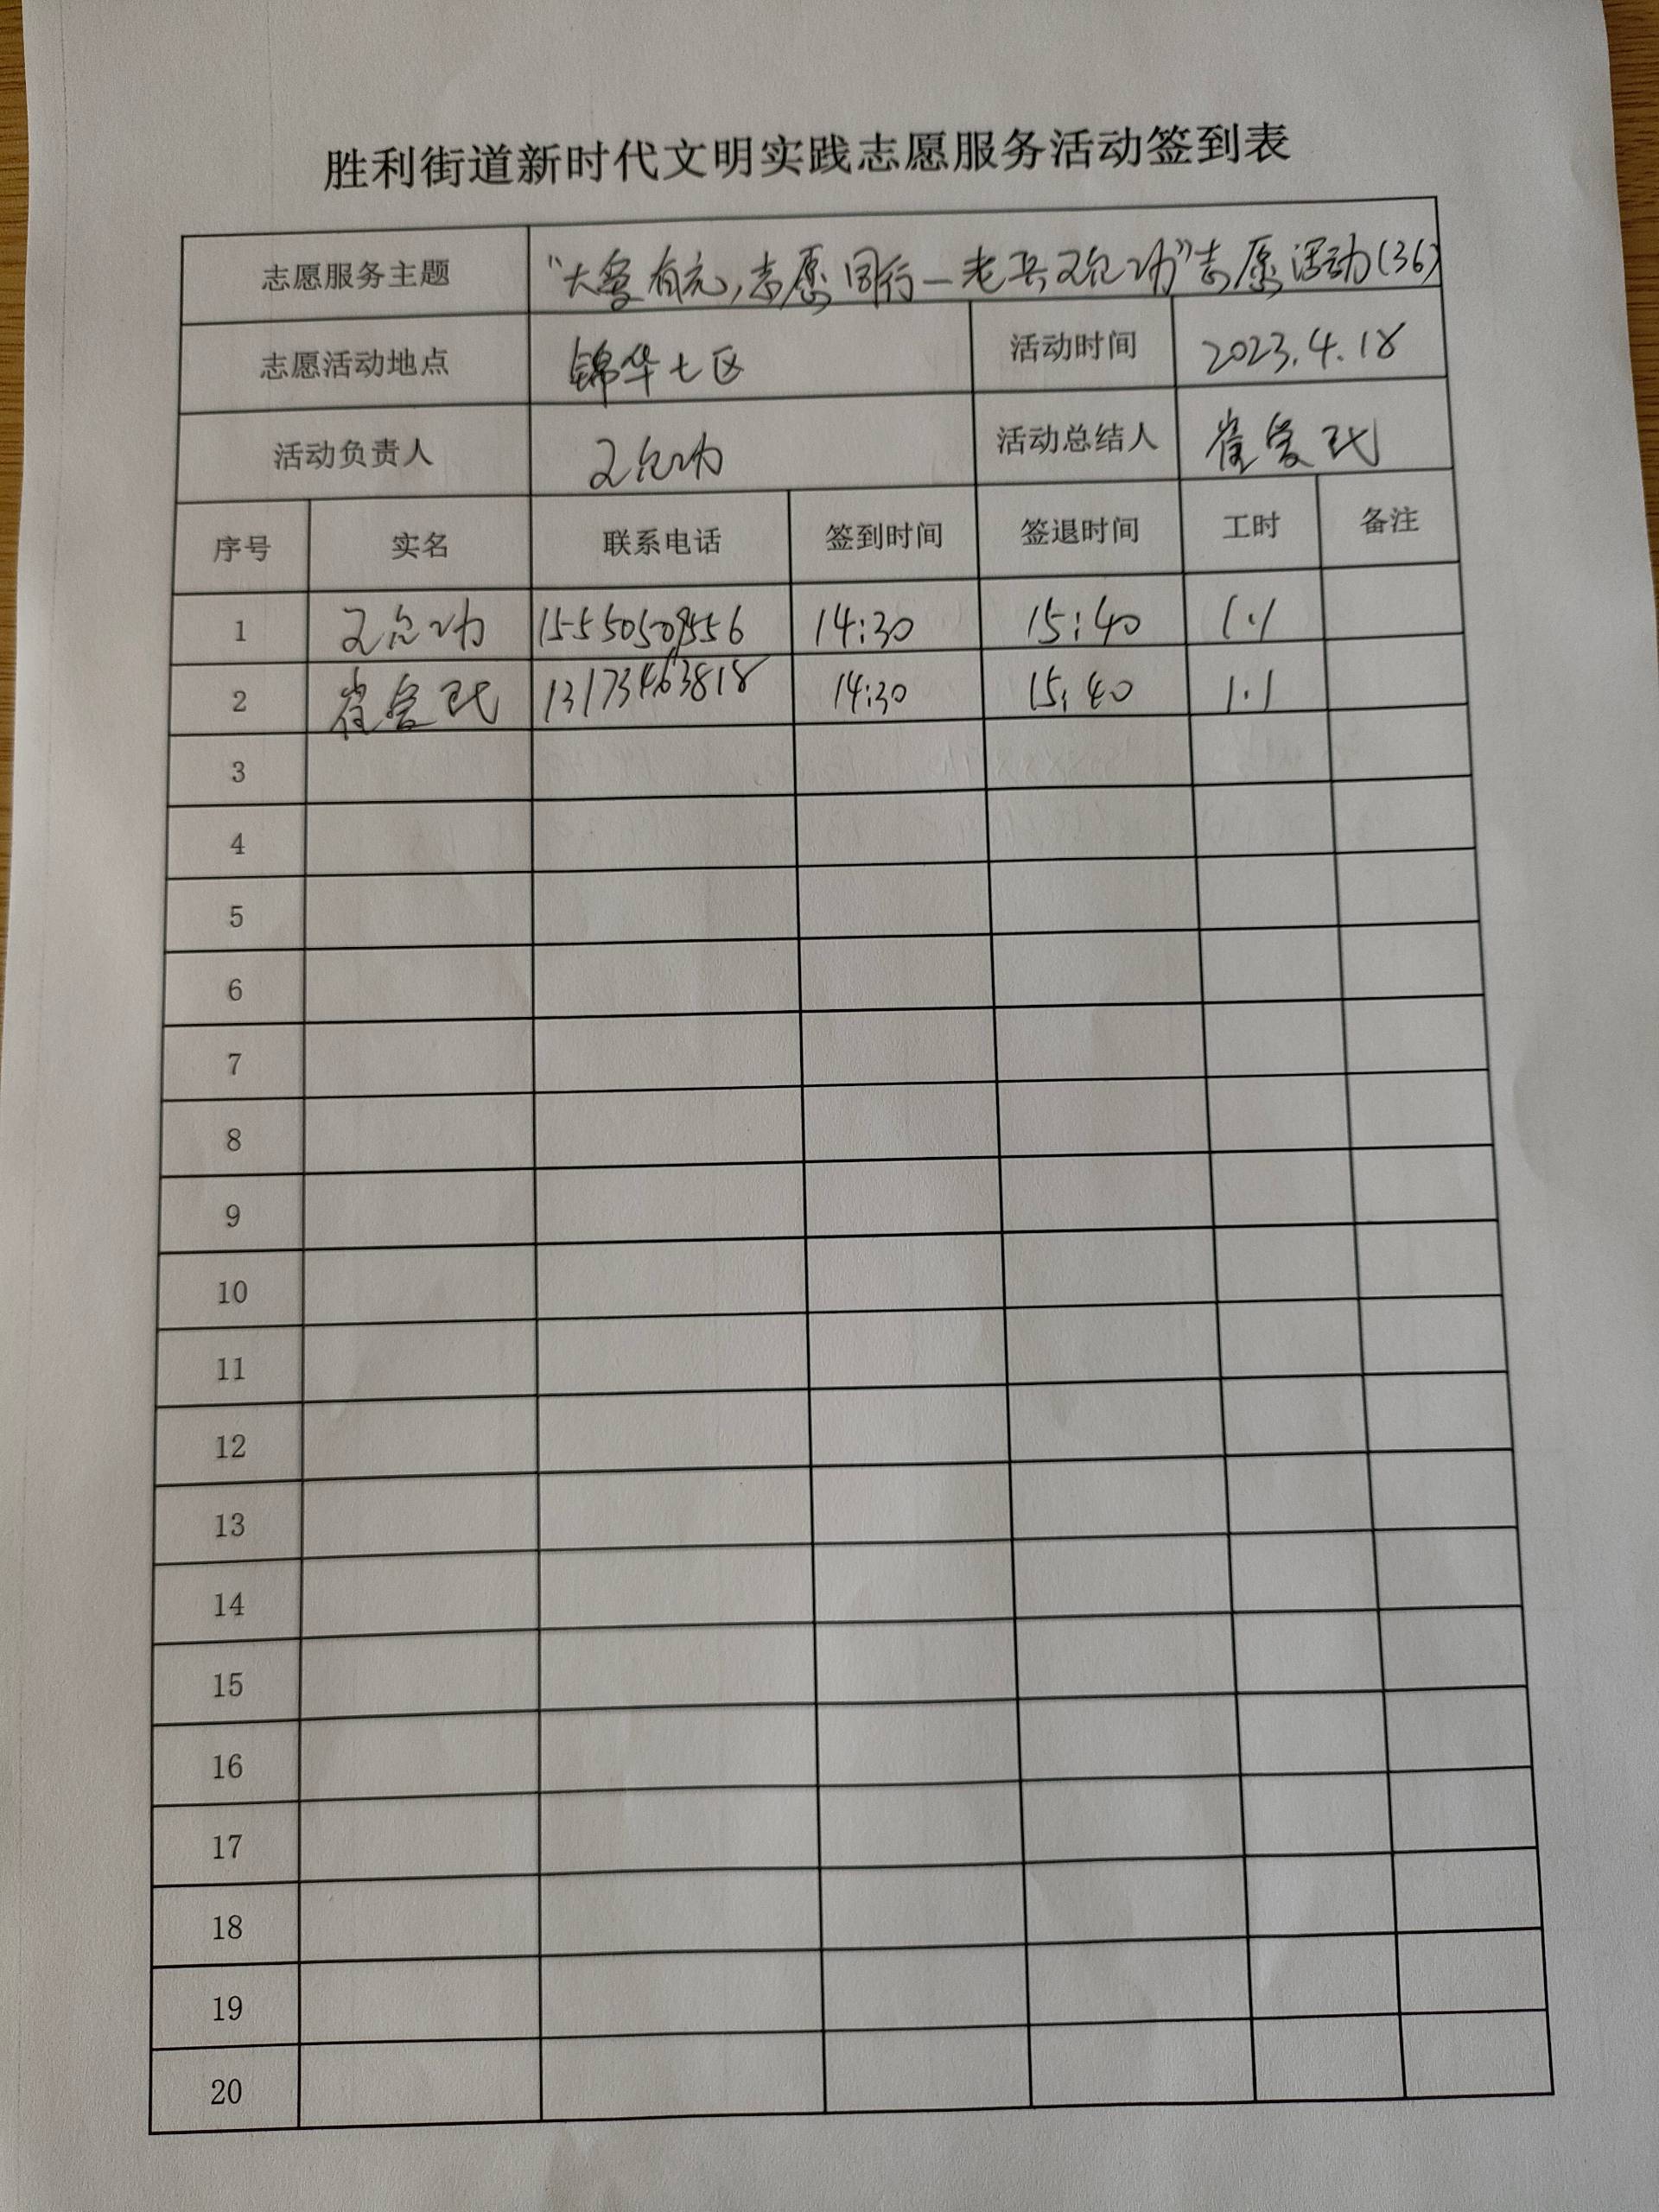 胜利街道新时代文明实践志愿服务活动签到表
志愿服务主题 "大爱有充,志愿同行—老兵 志愿活动(36)
志愿活动地点 锦华七区 活动时间 2023.4.18
活动负责人 活动总结人 崔爱民
序号 实名 联系电话 签到时间 签退时间 工时 备注
1 14:30 15:40 1.1
2 崔爱民 13173463818 14:30 15:40 1.1
3
4
5
6
7
8
9
10
11
12
13
14
15
16
17
18
19
20